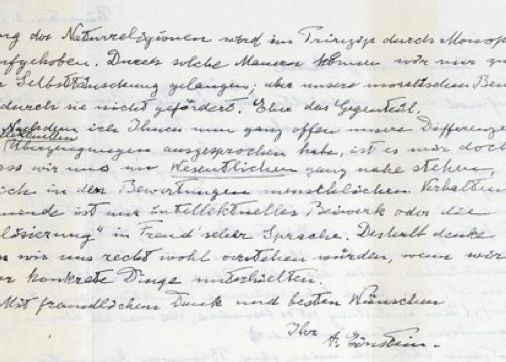 ung der Naturreligionen wird im Prinzip durch Monop
ufgehoben. Durch solche Mauern können wir nur zu
r Selbsttäuschung gelangen; aber unsere moralischen Bem
durch sie nicht gefördert. Eher das Gegenteil.
Nachdem ich Ihnen nun ganz offen unsere Differenze
Überzeugungen ausgesprochen habe, ist es mir doch
ass wir uns im Wesentlichen ganz nahe stehen,
ich in den Bewertungen menschlichen Verhalten
nende ist nur intellektuelles Beiwerk oder die
lisierung" in Freud'scher Sprache. Deshalb denke
n wir uns recht wohl verstehen würden, wenn wir
er konkrete Dinge unterhielten.
Mit freundlichem Dank und besten Wünschen
Ihr A. Einstein.